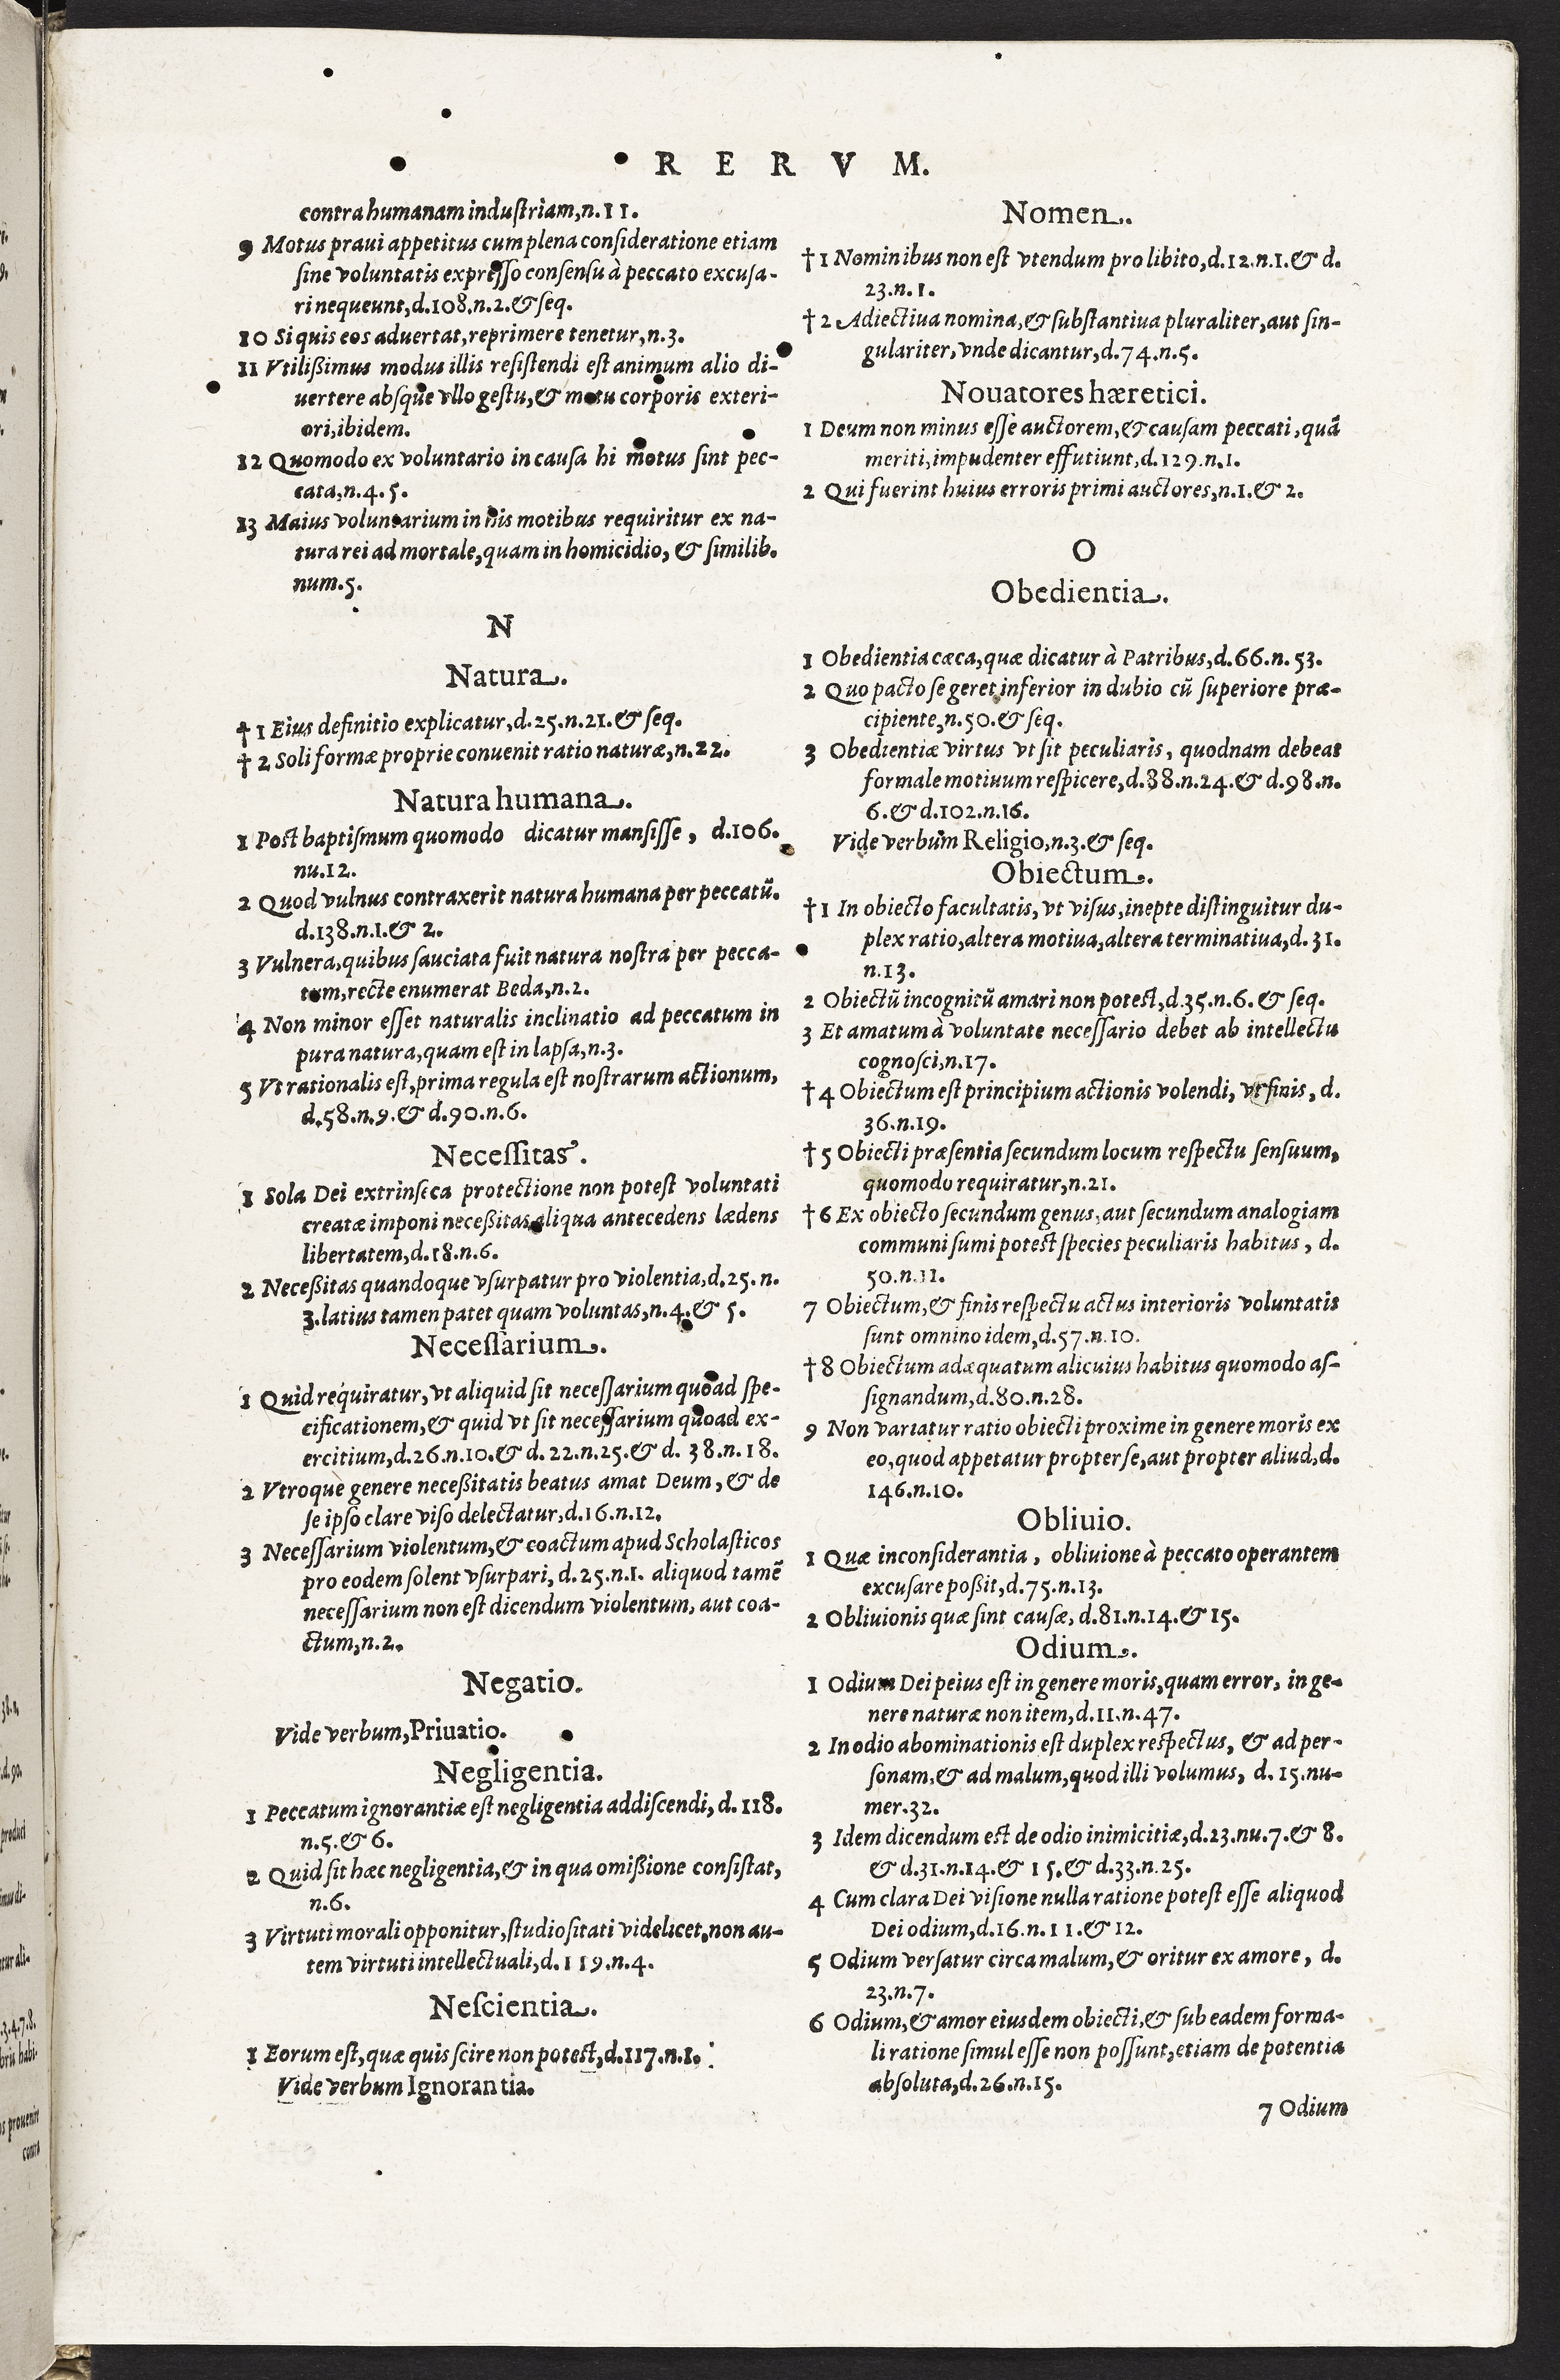 RERVM.
contra humanam induſtriam, n. 11.
9 Motus praui appetitus cum plena conſideratione etiam
ſine voluntatis expreſſo conſenſu à peccato excuſa-
ri nequeunt, d. 108. n. 2. & ſeq.
10 Si quis eos aduertat, reprimere tenetur, n. 3.
11 Vtilißimus modus illis reſiſtendi eſt animum alio di-
uertere abſque vllo geſtu, & motu corporis exteri-
ori, ibidem.
12 Quomodo ex voluntario in cauſa hi motus ſint pec-
cata, n. 4. 5.
13 Maius voluntarium in his motibus requiritur ex na-
tura rei ad mortale, quam in homicidio, & ſimilib.
num. 5.
N
Natura.
† 1 Eius definitio explicatur, d. 25. n. 21. & ſeq.
† 2 Soli formæ proprie conuenit ratio naturæ, n. 22.
Natura humana.
1 Post baptiſmum quomodo dicatur manſiſſe, d. 106.
nu. 12.
2 Quod vulnus contraxerit natura humana per peccatũ.
d. 138. n. 1. & 2.
3 Vulnera, quibus ſauciata fuit natura noſtra per pecca-
tum, recte enumerat Beda, n. 2.
4 Non minor eſſet naturalis inclinatio ad peccatum in
pura natura, quam eſt in lapſa, n. 3.
5 Vt rationalis eſt, prima regula eſt noſtrarum actionum,
d. 58. n. 9. & d. 90. n. 6.
Neceſſitas.
1 Sola Dei extrinſeca protectione non poteſt voluntati
creatæ imponi neceßitas aliqua antecedens lædens
libertatem, d. 18. n. 6.
2 Neceßitas quandoque vſurpatur pro violentia, d. 25. n.
3. latius tamen patet quam voluntas, n. 4. & 5.
Neceſſarium.
1 Quid requiratur, vt aliquid ſit neceſſarium quoad ſpe-
cificationem, & quid vt ſit neceſſarium quoad ex-
ercitium, d. 26. n. 10. & d. 22. n. 25. & d. 38. n. 18.
2 Vtroque genere neceßitatis beatus amat Deum, & de
ſe ipſo clare viſo delectatur, d. 16. n. 12.
3 Neceſſarium violentum, & coactum apud Scholaſticos
pro eodem ſolent vſurpari, d. 25. n. 1. aliquod tamẽ
neceſſarium non eſt dicendum violentum, aut coa-
ctum, n. 2.
Negatio.
Vide verbum, Priuatio.
Negligentia.
1 Peccatum ignorantiæ eſt negligentia addiſcendi, d. 118.
n. 5. & 6.
2 Quid ſit hæc negligentia, & in qua omißione conſiſtat,
n. 6.
3 Virtuti morali opponitur, ſtudioſitati videlicet, non au-
tem virtuti intellectuali, d. 119. n. 4.
Neſcientia.
1 Eorum eſt, quæ quis ſcire non poteſt, d. 117. n. 1.
Vide verbum Ignorantia.
Nomen.
† 1 Nominibus non eſt vtendum pro libito, d. 12. n. 1. & d.
23. n. 1.
† 2 Adiectiua nomina, & ſubſtantiua pluraliter, aut ſin-
gulariter, vnde dicantur, d. 74. n. 5.
Nouatores hæretici.
1 Deum non minus eſſe auctorem, & cauſam peccati, quã
meriti, impudenter effutiunt, d. 129. n. 1.
2 Qui fuerint huius erroris primi auctores, n. 1. & 2.
O
Obedientia.
1 Obedientia cæca, quæ dicatur à Patribus, d. 66. n. 53.
2 Quo pacto ſe geret inferior in dubio cũ ſuperiore præ-
cipiente, n. 50. & ſeq.
3 Obedientiæ virtus vt ſit peculiaris, quodnam debeat
formale motiuum reſpicere, d. 88. n. 24. & d. 98. n.
6. & d. 102. n. 16.
Vide verbum Religio, n. 3. & ſeq.
Obiectum.
† 1 In obiecto facultatis, vt viſus, inepte diſtinguitur du-
plex ratio, altera motiua, altera terminatiua, d. 31.
n. 13.
2 Obiectũ incognitũ amari non poteſt, d. 35. n. 6. & ſeq.
3 Et amatum à voluntate neceſſario debet ab intellectu
cognoſci, n. 17.
† 4 Obiectum eſt principium actionis volendi, vt finis, d.
36. n. 19.
† 5 Obiecti præſentia ſecundum locum reſpectu ſenſuum,
quomodo requiratur, n. 21.
† 6 Ex obiecto ſecundum genus, aut ſecundum analogiam
communi ſumi potest ſpecies peculiaris habitus, d.
50. n. 11.
7 Obiectum, & finis reſpectu actus interioris voluntatis
ſunt omnino idem, d. 57. n. 10.
† 8 Obiectum adæquatum alicuius habitus quomodo aſ-
ſignandum, d. 80. n. 28.
9 Non variatur ratio obiecti proxime in genere moris ex
eo, quod appetatur propter ſe, aut propter aliud, d.
146. n. 10.
Obliuio.
1 Quæ inconſiderantia, obliuione à peccato operantem
excuſare poßit, d. 75. n. 13.
2 Obliuionis quæ ſint cauſæ, d. 81. n. 14. & 15.
Odium.
1 Odium Dei peius eſt in genere moris, quam error, in ge-
nere naturæ non item, d. 11. n. 47.
2 In odio abominationis eſt duplex respectus, & ad per-
ſonam, & ad malum, quod illi volumus, d. 15. nu-
mer. 32.
3 Idem dicendum est de odio inimicitiæ, d. 23. nu. 7. & 8.
& d. 31. n. 14. & 15. & d. 33. n. 25.
4 Cum clara Dei viſione nulla ratione poteſt eſſe aliquod
Dei odium, d. 16. n. 11. & 12.
5 Odium verſatur circa malum, & oritur ex amore, d.
23. n. 7.
6 Odium, & amor eiusdem obiecti, & ſub eadem forma-
li ratione ſimul eſſe non poſſunt, etiam de potentia
abſoluta, d. 26. n. 15.
7 Odium